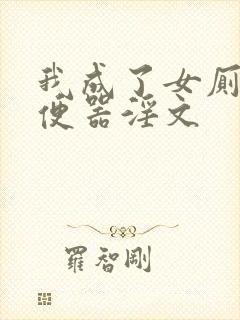 我成了女厕
便器淫文
羅智剛